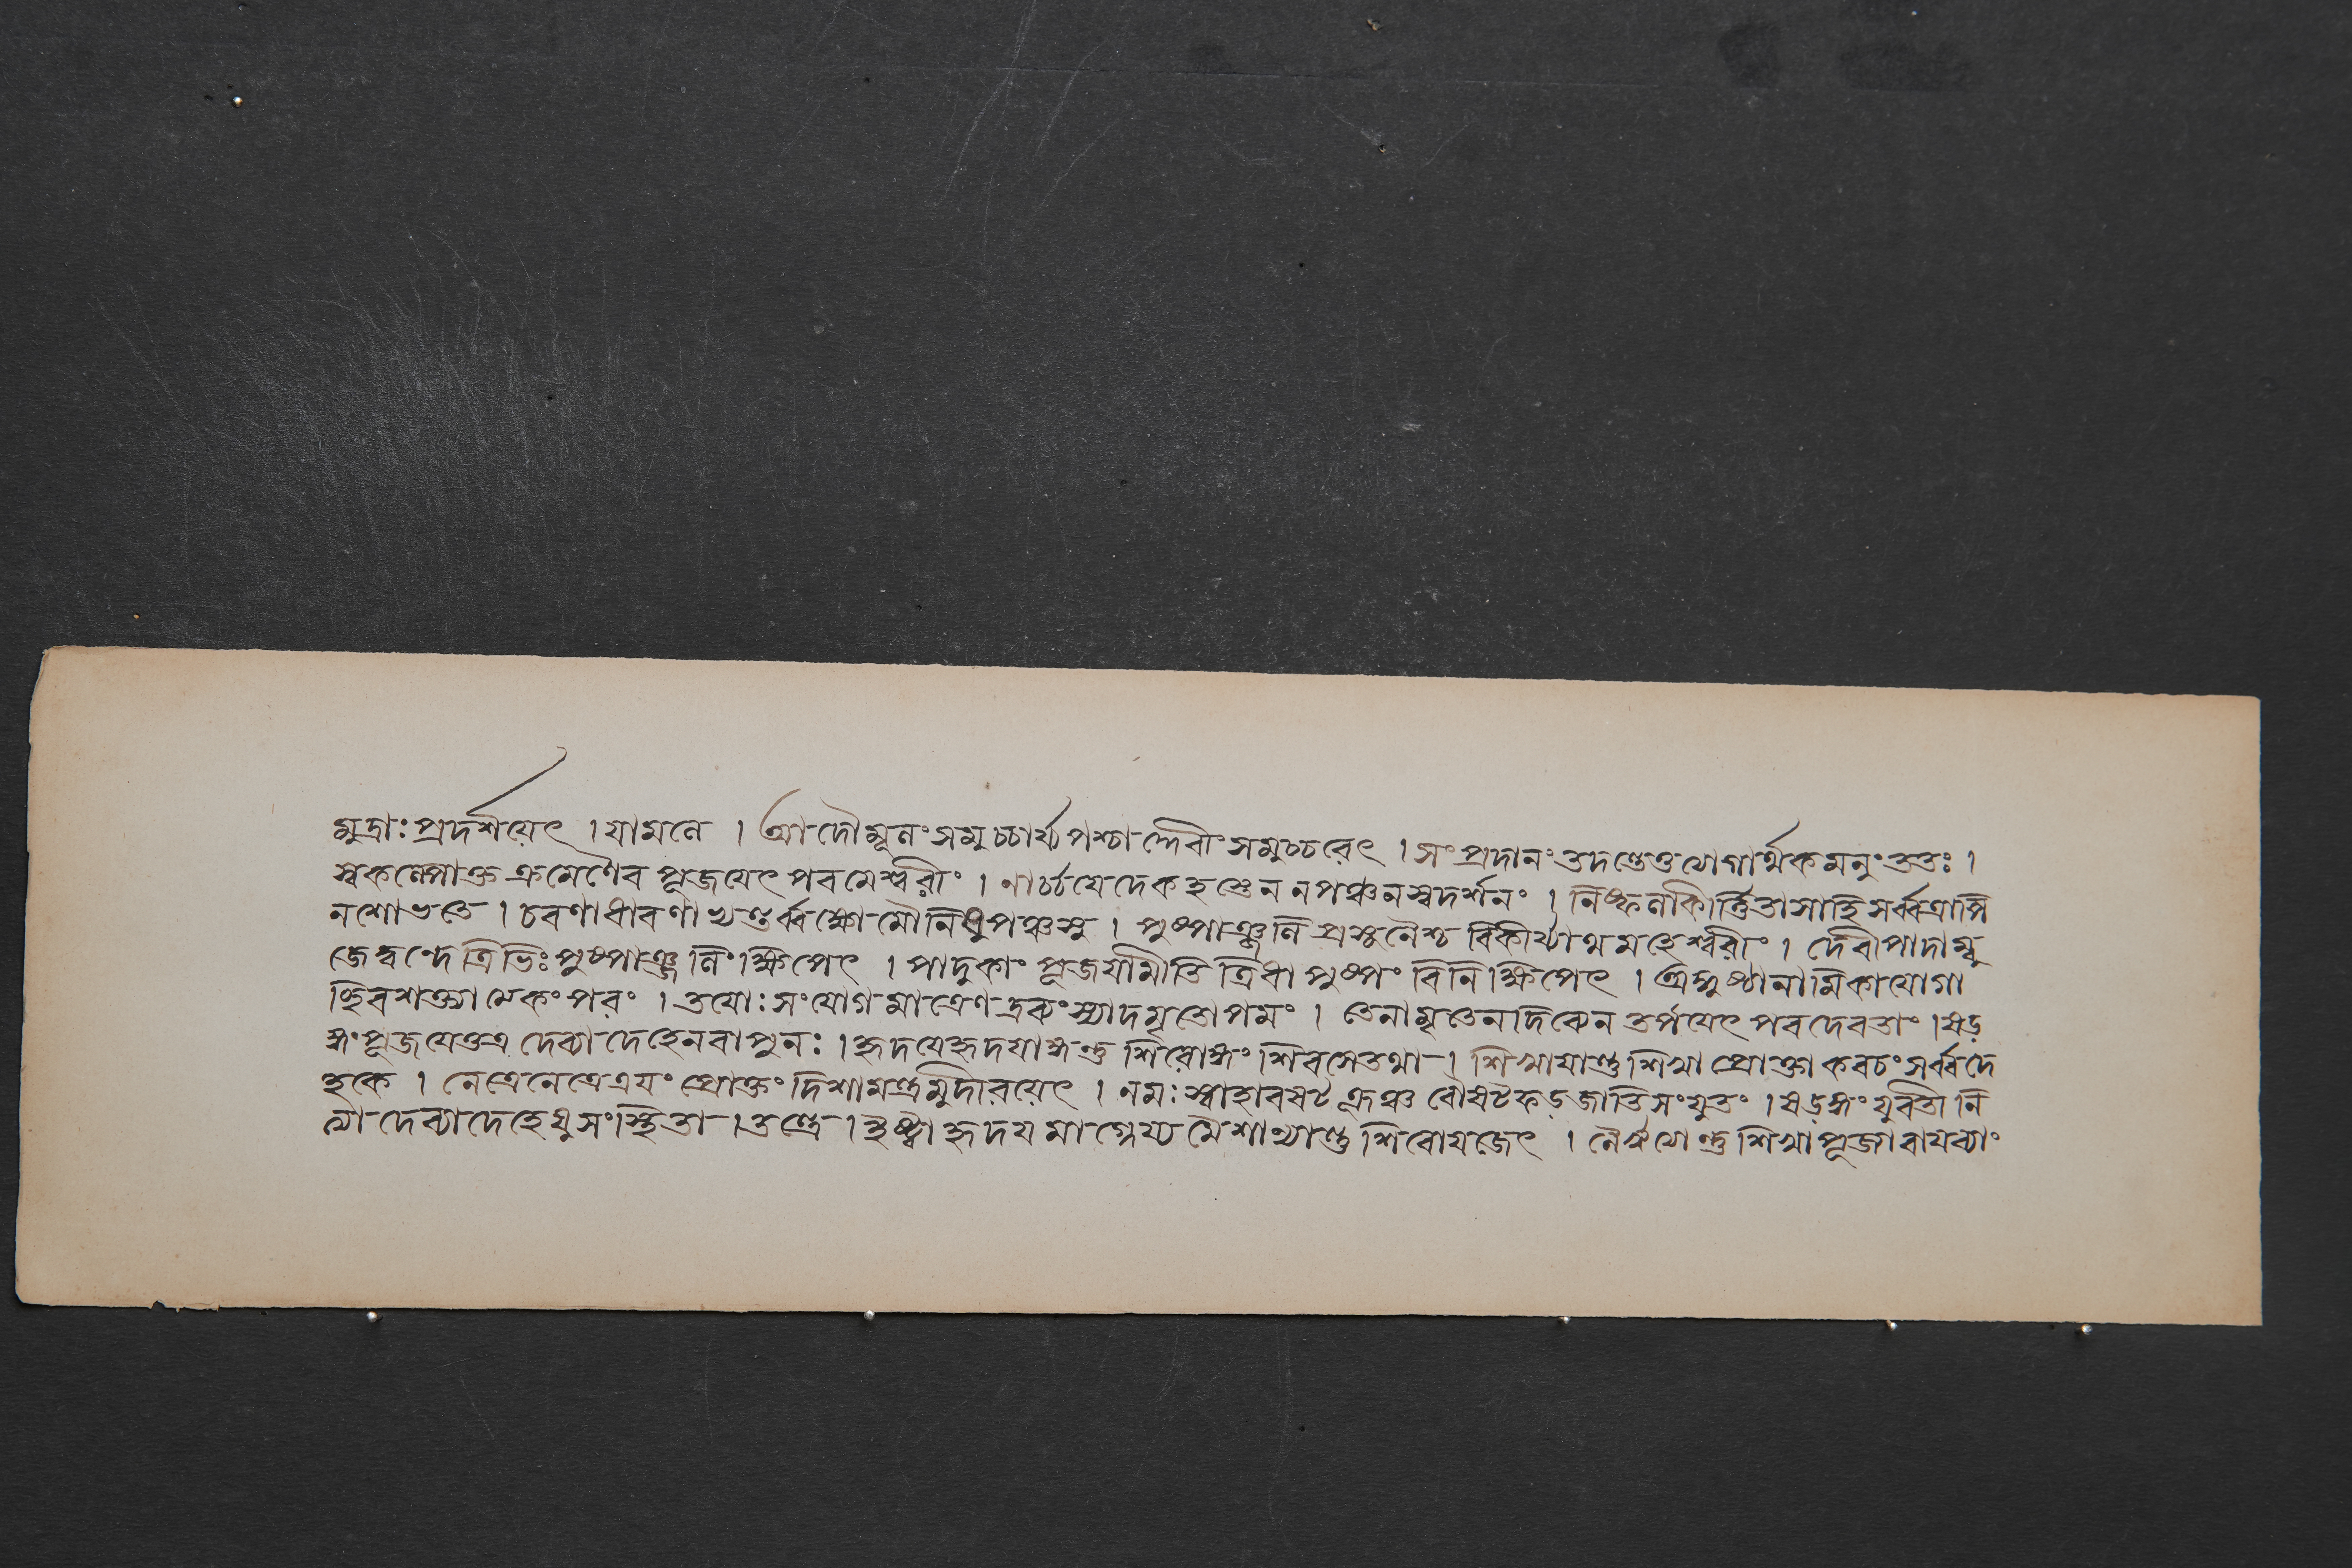 মুদ্রাঃ প্রদর্শয়েৎ । যামলে । আদৌ মূলং সমুচ্চার্য্য পশ্চাদ্দেবীং সমুচ্চরেৎ । সংপ্রদানং তদন্তে তু যোগার্থকমনুং ততঃ ।
স্বকল্পোক্ত ক্রমেণৈব পূজয়েৎ পরমেশ্বরীং । নার্চ্চয়েদেকহস্তেন ন পঞ্চন স্বদর্শনং । নিষ্ফলা কীর্ত্তিতা সা হি সর্ব্বত্রাপি
ন শোভতে । চরণাধারণা সর্ব্ব মৌনি পঞ্চসু । পুষ্পাঞ্জলি প্রসূনৈশ্চ বিকীর্য্যাথ মহেশ্বরীং । দেবীপাদাম্বু
জে ত্রিভিঃ পুষ্পাঞ্জলিং ক্ষিপেৎ । পাদুকাং পূজয়ামীতি ত্রিধা পুষ্পং বিনিক্ষিপেৎ । অঙ্গুষ্ঠানামিকা যোগা
চ্ছিবশক্ত্যাত্মকং পরং । তয়োঃ সংযোগমাত্রেণ স্যাদমৃতোপমং । তেনামৃতেন দিব্যেন তর্পয়েৎ পরদেবতাং । ষড়
ঙ্গং পূজয়েত্তত্র দেব্যা দেহেন বা পুনঃ । হৃদয়ে হৃদয়াঙ্গন্তু শিরোঙ্গং শিরসে তথা । শিখায়ান্তু শিখা প্রোক্তা কবচং সর্ব্বদে
হকে । নেত্রে নেত্রত্রয়ং প্রোক্তং দিশামস্ত্রমুদীরয়েৎ । নমঃ স্বাহা বষট্ হুঞ্চ বৌষট্ ফড় জাতি সংযুতং । ষড়ঙ্গং যুবতী নি
ত্যা দেব্যা দেহেষু সংস্থিতা । তন্ত্রে । ইষ্ট্বা হৃদয়মাগ্নেয্য মৈশান্যান্তু শিরো যজেৎ । নৈরৃত্যেন্তু শিখা পূজ্যা বায়ব্যাং